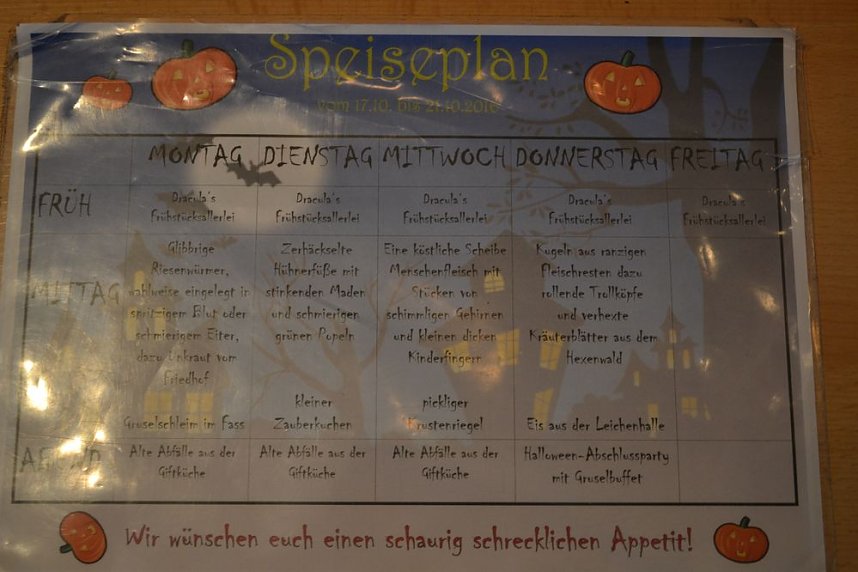 Speiseplan
vom 17.10. bis 21.10.2016
MONTAG DIENSTAG MITTWOCH DONNERSTAG FREITAG
FRÜH
Dracula's
Frühstücksallerlei
Dracula's
Frühstücksallerlei
Dracula's
Frühstücksallerlei
Dracula's
Frühstücksallerlei
Dracula's
Frühstücksallerlei
MITTAG
Glibbrige
Riesenwürmer,
wahlweise eingelegt in
spritzigem Blut oder
schmierigem Eiter,
dazu Unkraut vom
Friedhof
Gruselschleim im Fass
Zerhäckselte
Hühnerfüße mit
stinkenden Maden
und schmierigen
grünen Popeln
kleiner
Zauberkuchen
Eine köstliche Scheibe
Menschenfleisch mit
Stücken von
schimmligen Gehirnen
und kleinen dicken
Kinderfingern
pickliger
Krustenriegel
Kugeln aus ranzigen
Fleischresten dazu
rollende Trollköpfe
und verhexte
Kräuterblätter aus dem
Hexenwald
Eis aus der Leichenhalle
ABEND
Alte Abfälle aus der
Giftküche
Alte Abfälle aus der
Giftküche
Alte Abfälle aus der
Giftküche
Halloween-Abschlussparty
mit Gruselbuffet
Wir wünschen euch einen schaurig schrecklichen Appetit!